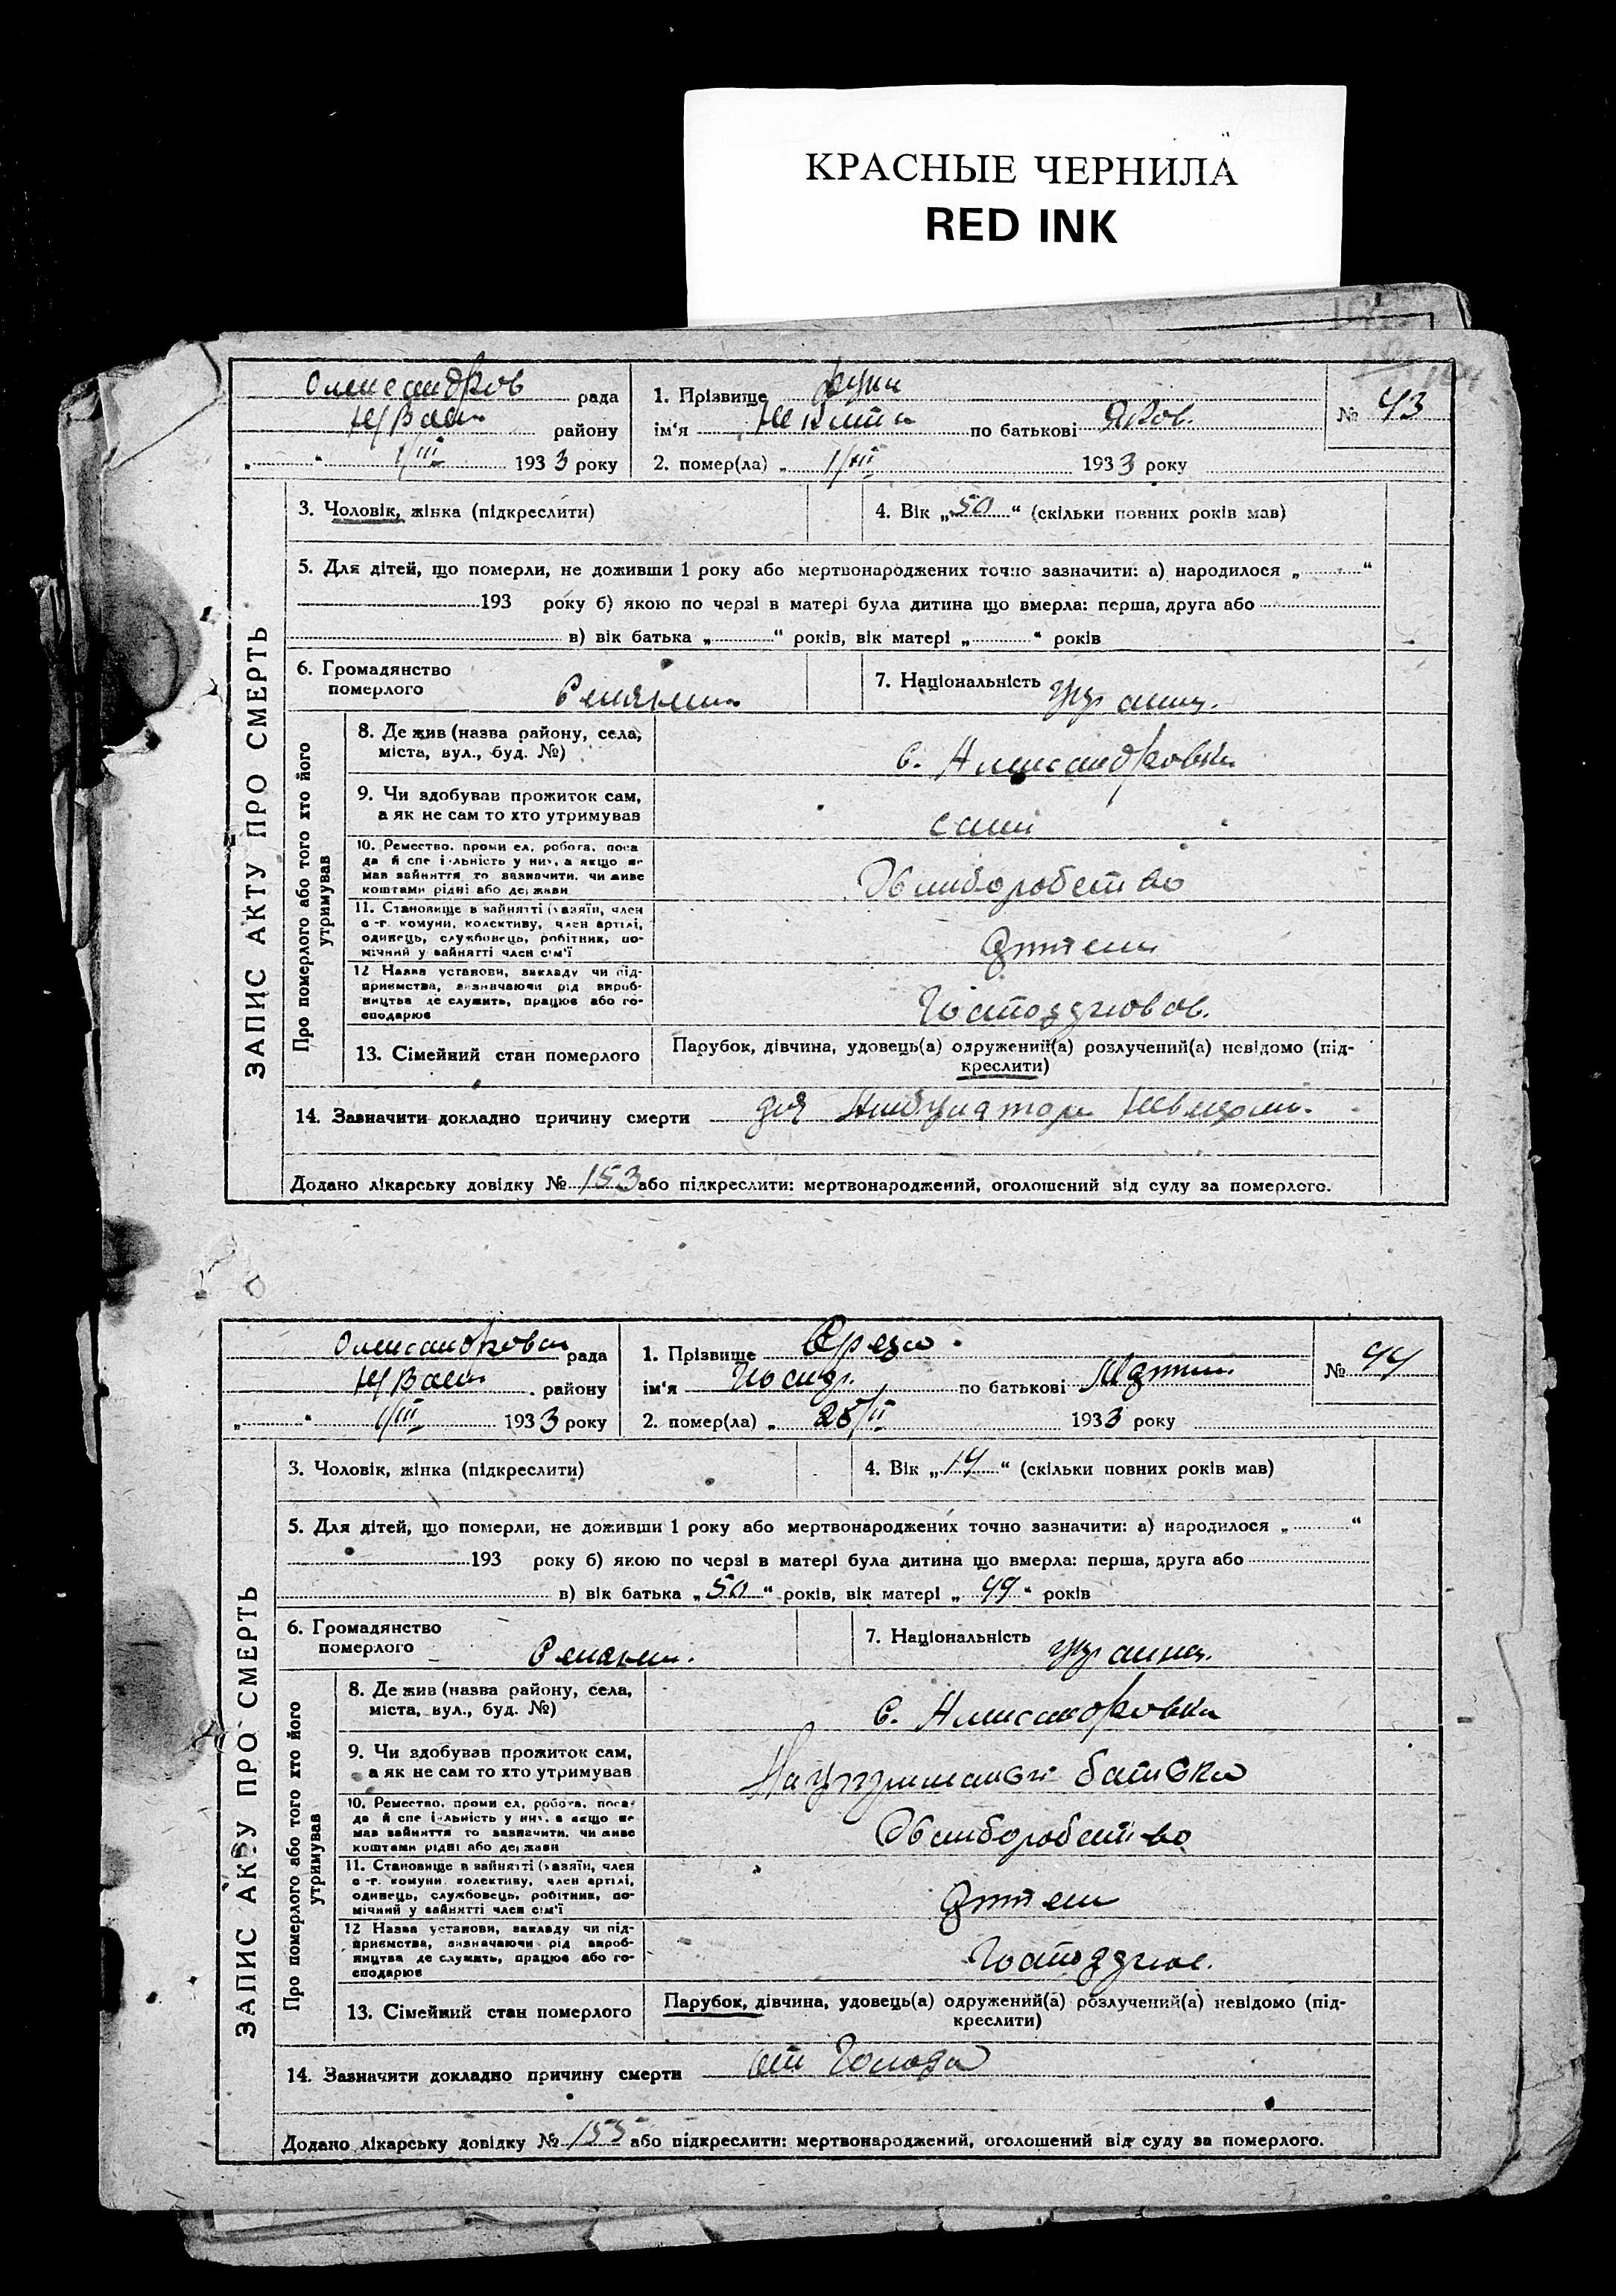 КРАСНЫЕ ЧЕРНИЛА
RED INK
Олександров рада
району
1/III 1933 року
1. Прізвище
ім'я Никита по батькові Яков.
2. помер(ла) „ 1/III 1933 року
№ 43
3. Чоловік, жінка (підкреслити)
4. Вік „50“ (скільки повних років мав)
5. Для дітей, що померли, не доживши 1 року або мертвонароджених точно зазначити: а) народилося „ “
193 року б) якою по черзі в матері була дитина що вмерла: перша, друга або
в) вік батька „ “ років, вік матері „ “ років
6. Громадянство
померлого
7. Національність
ЗАПИС АКТУ ПРО СМЕРТЬ
Про померлого або того хто його
утримував
8. Де жив (назва району, села,
міста, вул., буд. №)
с. Александровка
9. Чи здобував прожиток сам,
а як не сам то хто утримував
сам
10. Ремество, промисел, робота, поса
да й спеціяльність у них, а якщо не
мав зайняття то зазначити, чи живе
коштами рідні або держави
Хлиборобство
11. Становище в зайнятті (хазяїн, член
с-г. комуни, колективу, член артілі,
одинець, службовець, робітник, по-
мічний у зайнятті член сім'ї
12 Назва установи, закладу чи під-
приємства, визначаючи рід вироб-
ництва де служить, працює або го-
сподарює
13. Сімейний стан померлого
Парубок, дівчина, удовець(а) одружений(а) розлучений(а) невідомо (під-
креслити)
14. Зазначити докладно причину смерти
Додано лікарську довідку № 153 або підкреслити: мертвонароджений, оголошений від суду за померлого.
Олександровка рада
району
1/III 1933 року
1. Прізвище
ім'я по батькові
2. помер(ла) „ 28/II 1933 року
№ 44
3. Чоловік, жінка (підкреслити)
4. Вік „14“ (скільки повних років мав)
5. Для дітей, що померли, не доживши 1 року або мертвонароджених точно зазначити: а) народилося „ “
193 року б) якою по черзі в матері була дитина що вмерла: перша, друга або
в) вік батька „50“ років, вік матері „49“ років
6. Громадянство
померлого
7. Національність
ЗАПИС АКТУ ПРО СМЕРТЬ
Про померлого або того хто його
утримував
8. Де жив (назва району, села,
міста, вул., буд. №)
с. Александровка
9. Чи здобував прожиток сам,
а як не сам то хто утримував
батька
10. Ремество, промисел, робота, поса
да й спеціяльність у них, а якщо не
мав зайняття то зазначити, чи живе
коштами рідні або держави
Хлиборобство
11. Становище в зайнятті (хазяїн, член
с-г. комуни, колективу, член артілі,
одинець, службовець, робітник, по-
мічний у зайнятті член сім'ї
12 Назва установи, закладу чи під-
приємства, визначаючи рід вироб-
ництва де служить, працює або го-
сподарює
13. Сімейний стан померлого
Парубок, дівчина, удовець(а) одружений(а) розлучений(а) невідомо (під-
креслити)
14. Зазначити докладно причину смерти от Голода
Додано лікарську довідку № 155 або підкреслити: мертвонароджений, оголошений від суду за померлого.